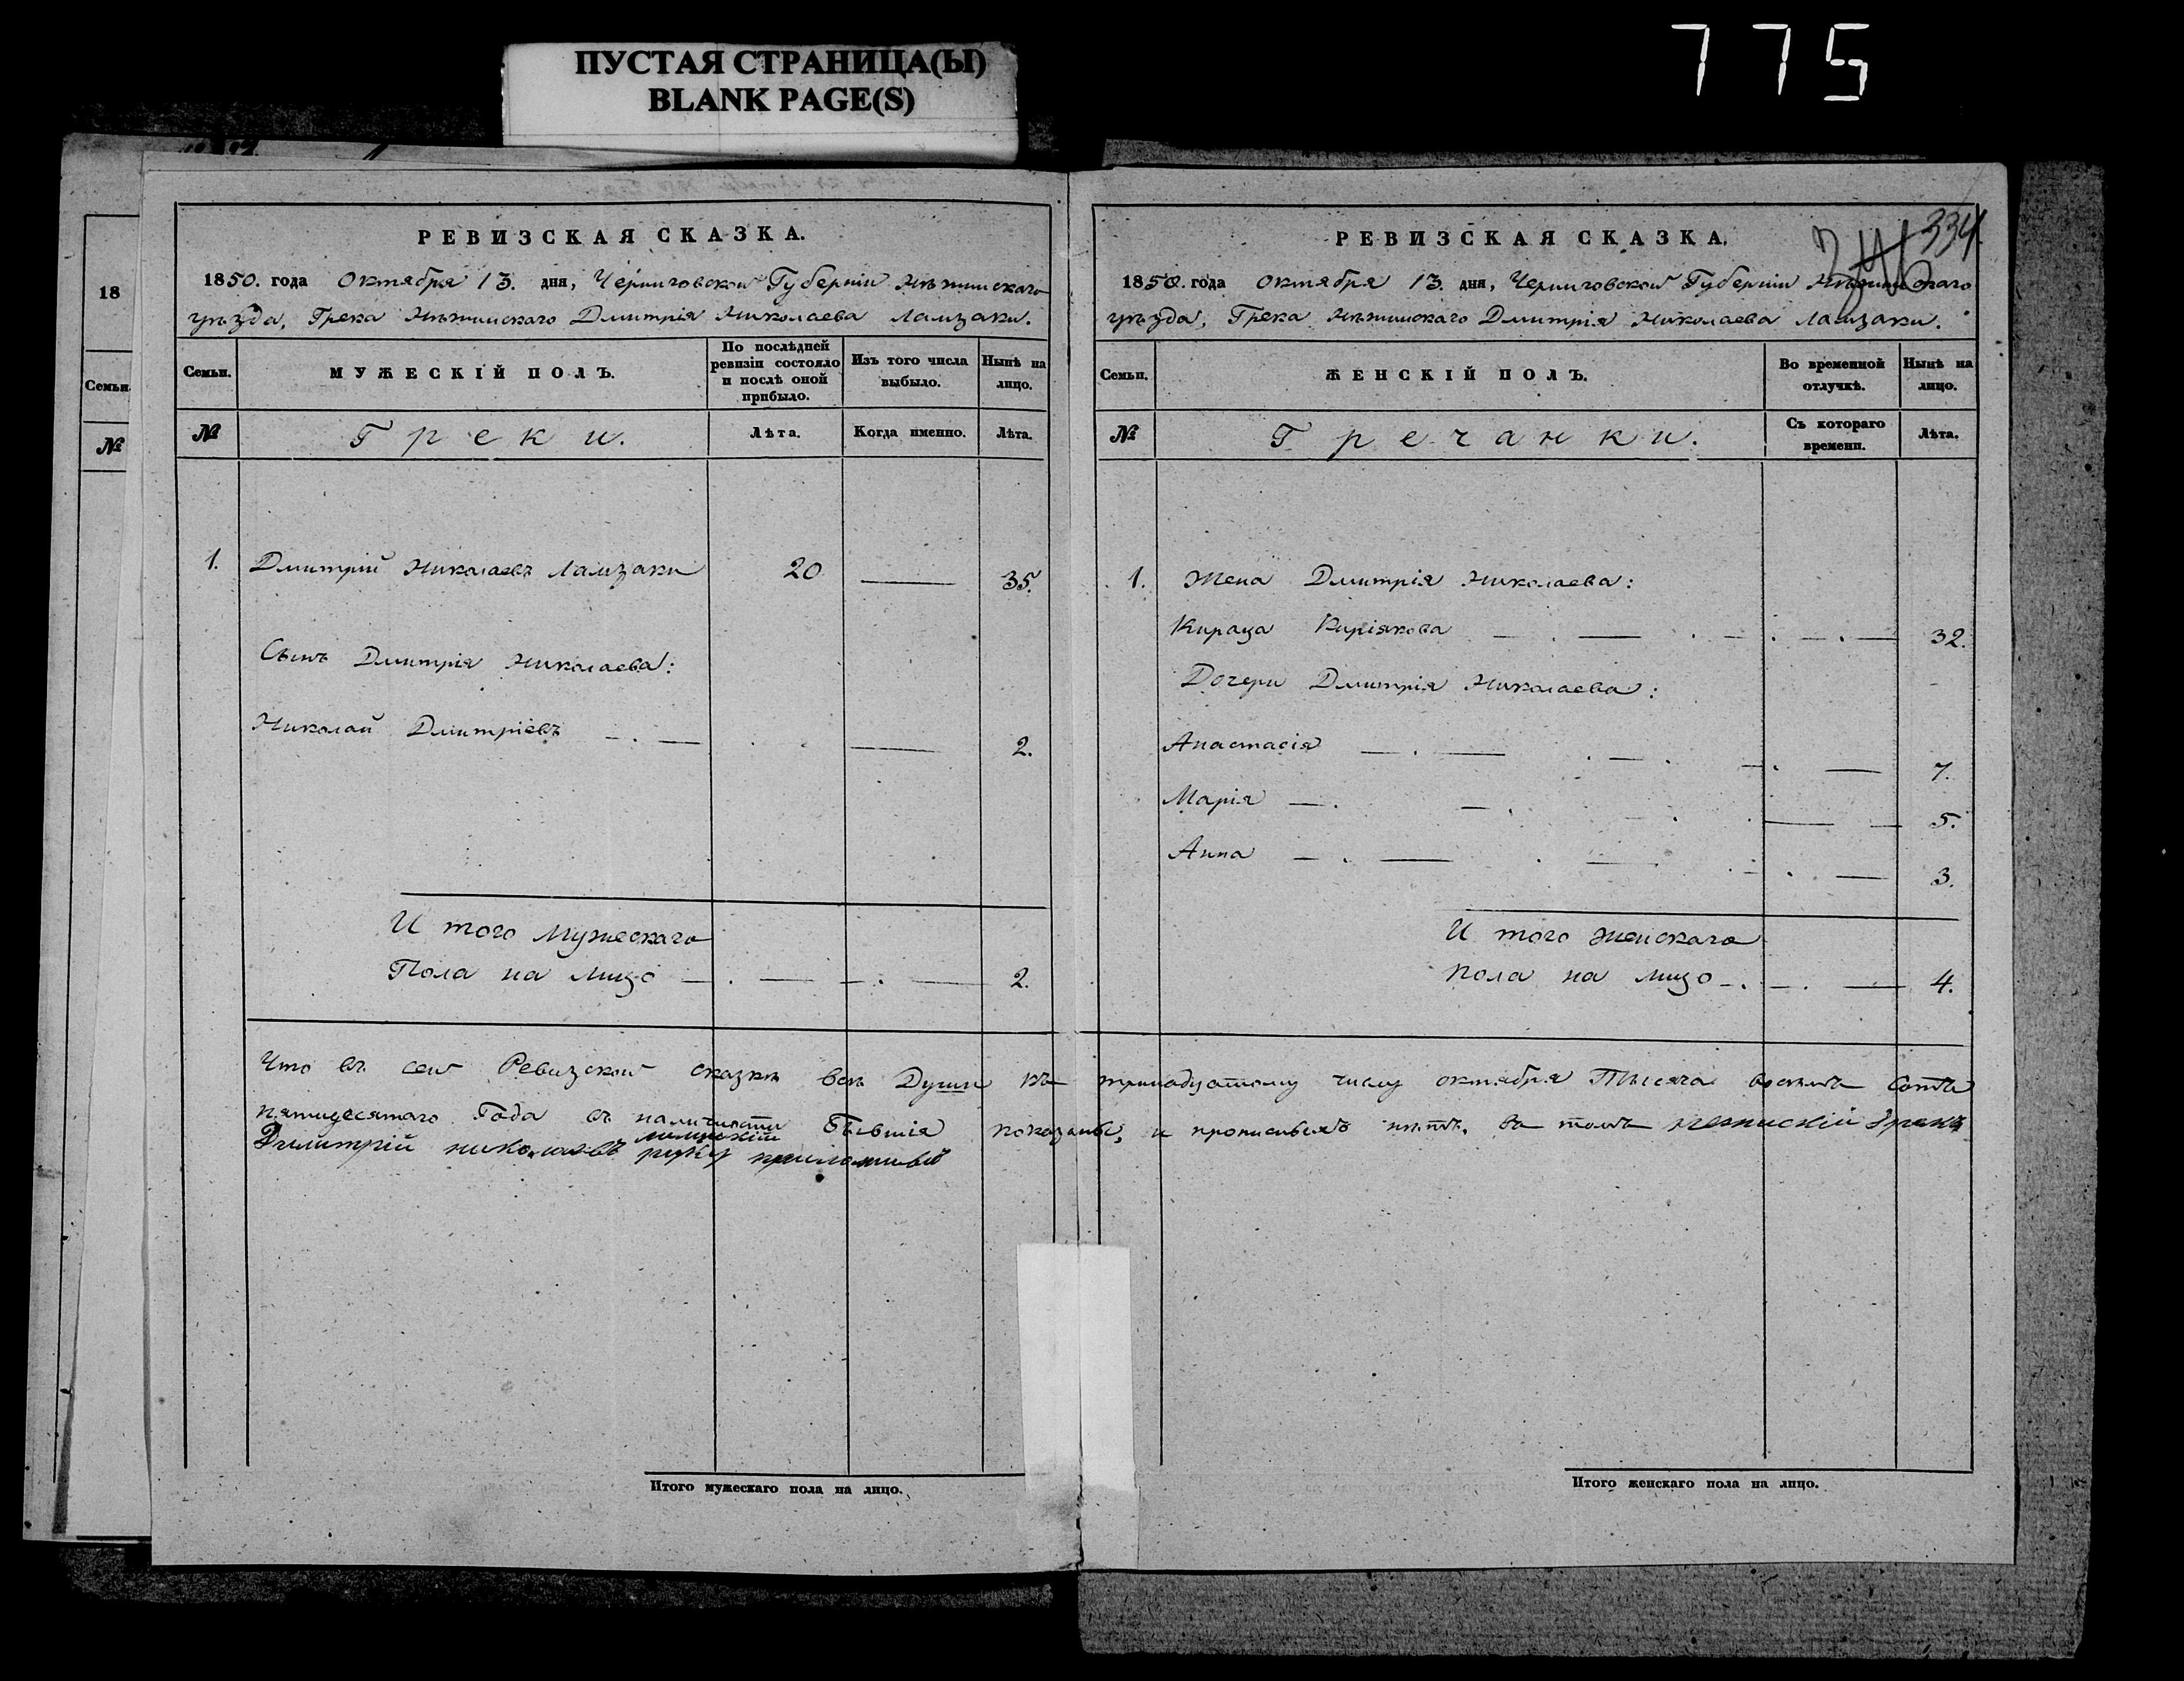 775
ПУСТАЯ СТРАНИЦА(Ы)
BLANK PAGE(S)
18
Семьи.
№
РЕВИЗСКАЯ СКАЗКА.
1850. года Октября 13. дня, Черниговской Губерніи Нѣжинскаго
уѣзда, Грека Нѣжинскаго Дмитрія Николаева Ламзаки.
Семьи.
МУЖЕСКІЙ ПОЛЪ.
По послѣдней ревизіи состояло и послѣ оной прибыло.
Изъ того числа выбыло.
Нынѣ на лицо.
№
Греки.
Лѣта.
Когда именно.
Лѣта.
1. Дмитрій Николаевъ Ламзаки 20 — 35.
Сынъ Дмитрія Николаева:
Николай Дмитріевъ — . — — 2.
И того Мужескаго
Пола на лицо — . — — . — 2.
334
РЕВИЗСКАЯ СКАЗКА.
1850. года Октября 13. дня, Черниговской Губерніи Нѣжинскаго
уѣзда, Грека Нѣжинскаго Дмитрія Николаева Ламзаки.
Семьи.
ЖЕНСКІЙ ПОЛЪ.
Во временной отлучкѣ.
Нынѣ на лицо.
№
Гречанки.
Съ котораго времени.
Лѣта.
1. Жена Дмитрія Николаева:
Кираца Киріякова — . — . — . — . — 32.
Дочери Дмитрія Николаева:
Анастасія — . — . — . — . — 7.
Марія — . — . — . — — 5.
Анна — . — . — . — . — 3.
И того женскаго
пола на лицо — . — . — 4.
Что въ сей Ревизской сказкѣ всѣ Души къ тринадцатому числу октября Тысяча восемь сотъ
пятидесятаго Года въ наличности Бывшія показаны, и прописныхъ нѣтъ, въ томъ нежинскій Грекъ
Дмитрій николаевъ руку приложилъ
Итого мужескаго пола на лицо.
Итого женскаго пола на лицо.